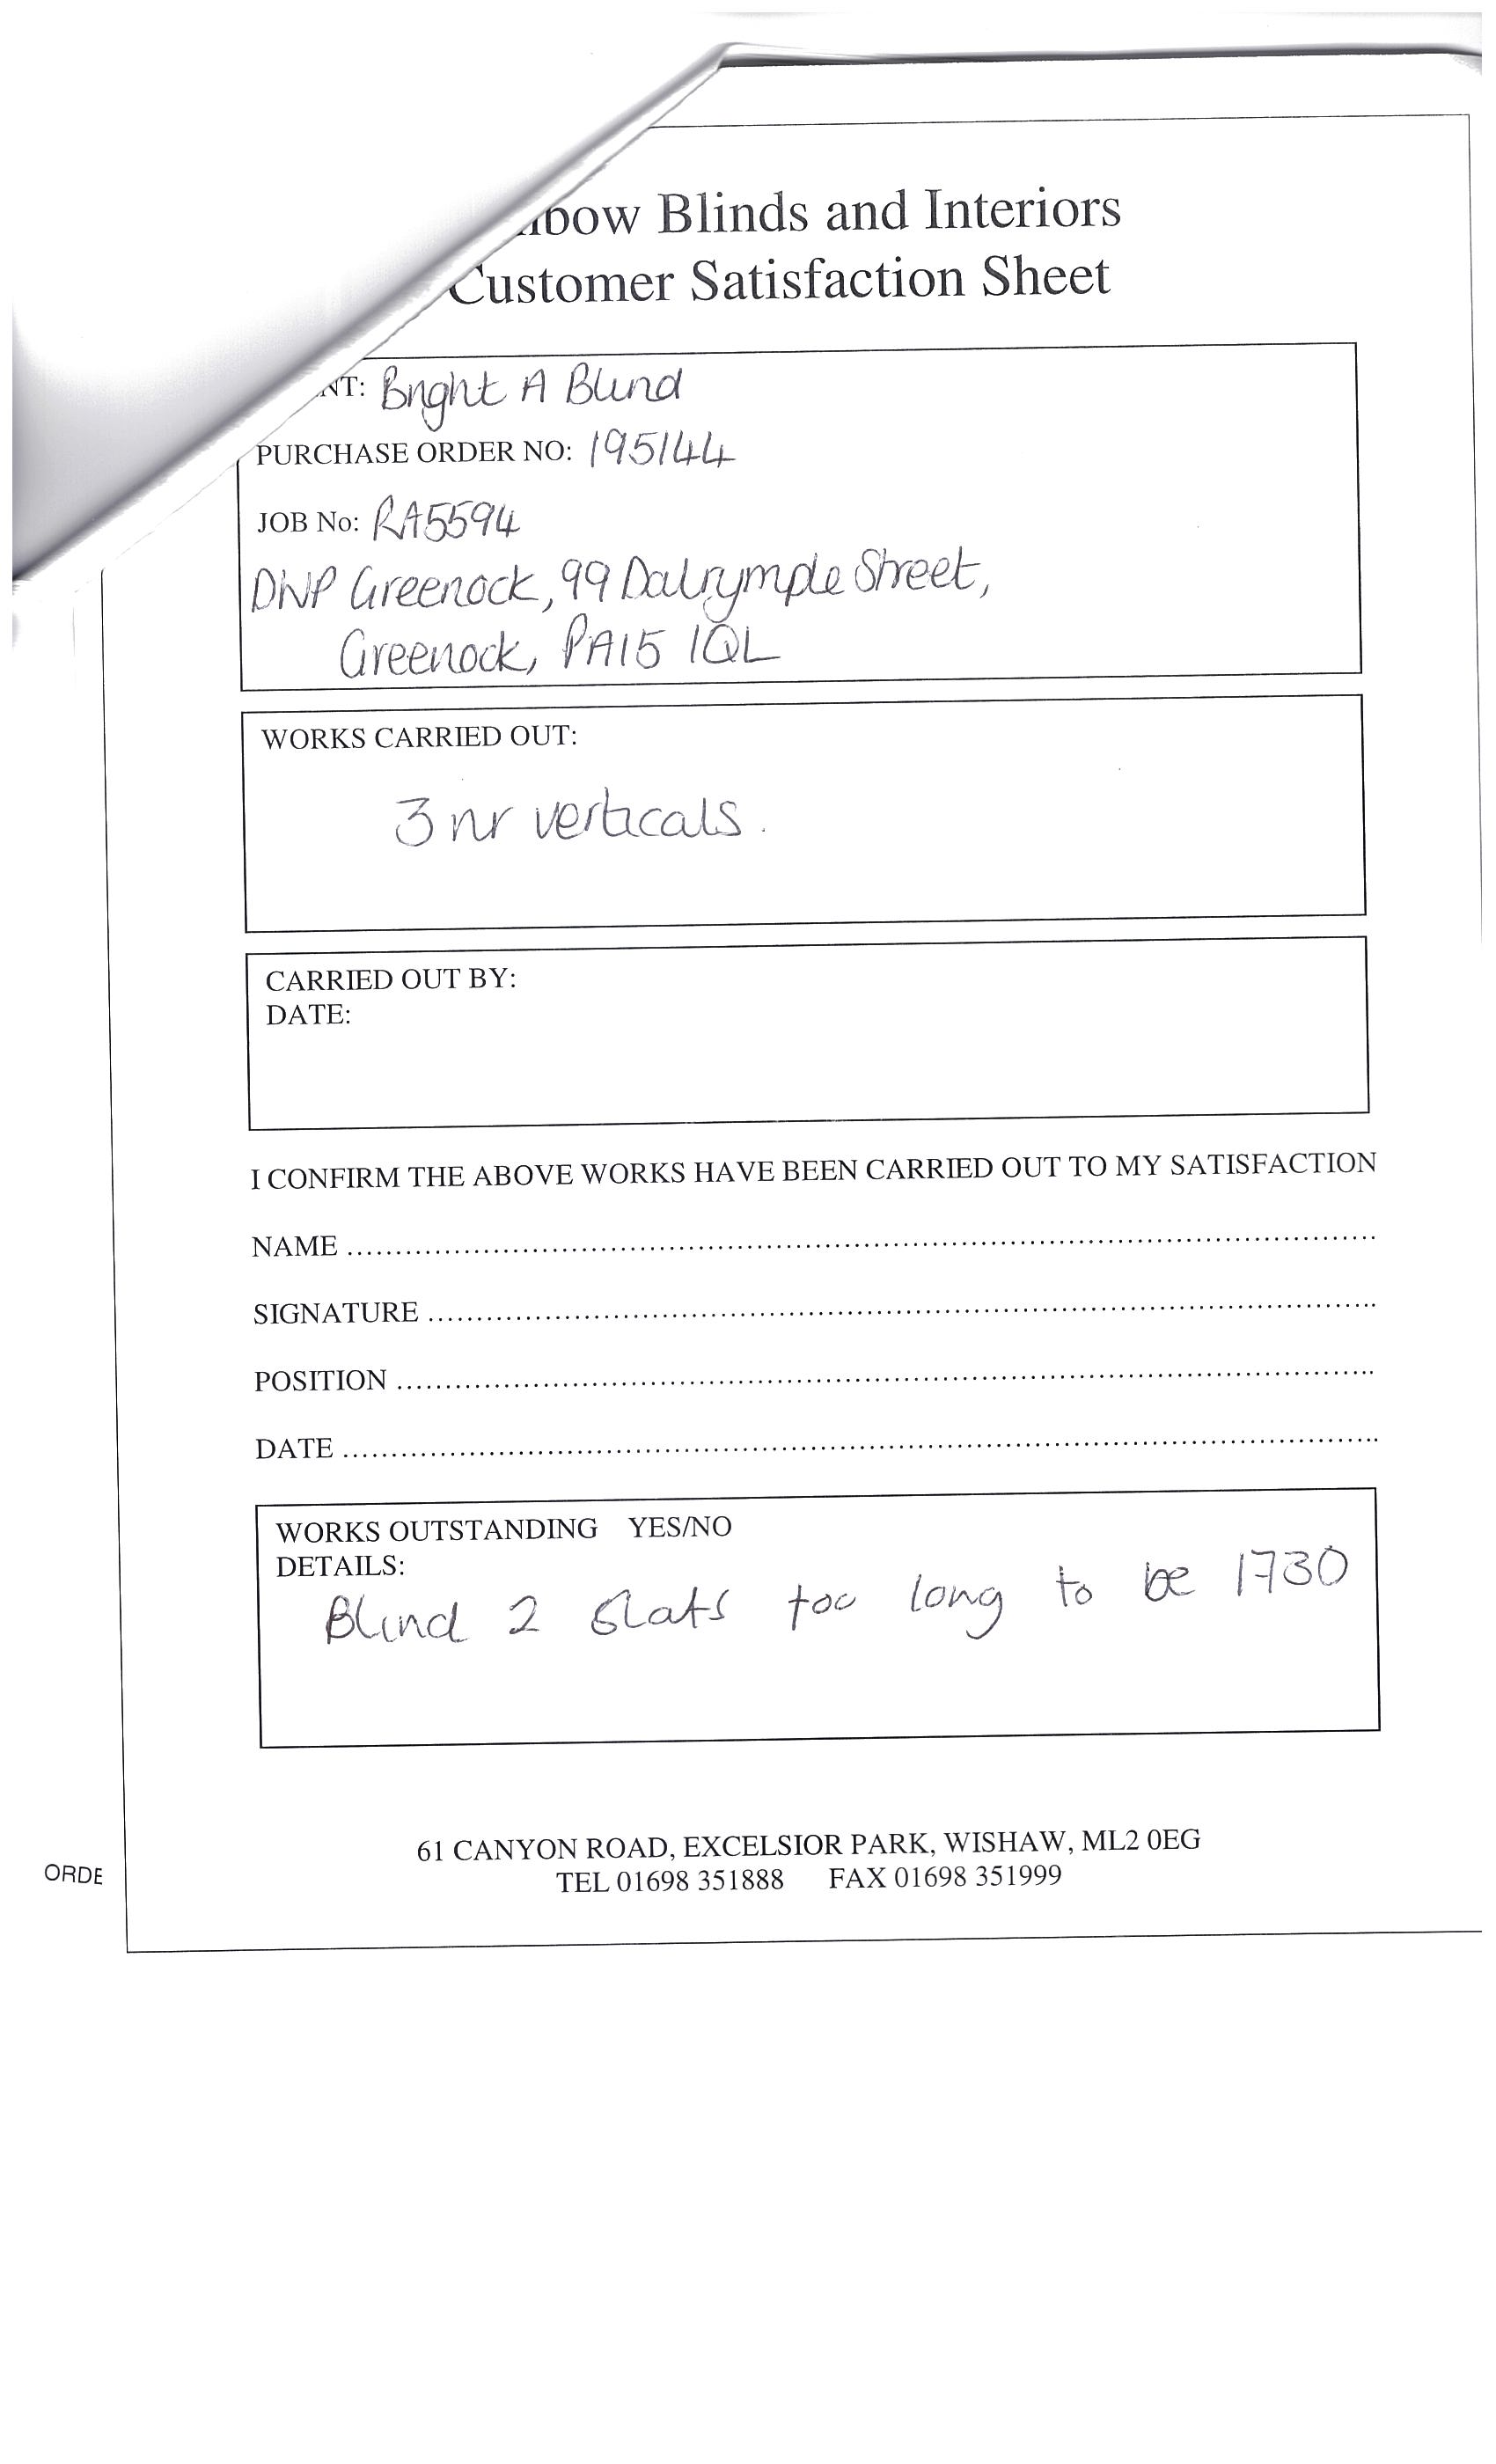 bow Blinds and Interiors
Customer Satisfaction Sheet
NT: Bright A Blind
PURCHASE ORDER NO: 195144
JOB No: RA5594
DWP Greenock, 99 Dalrymple Street,
Greenock, PA15 1QL
WORKS CARRIED OUT:
3 nr verticals.
CARRIED OUT BY:
DATE:
I CONFIRM THE ABOVE WORKS HAVE BEEN CARRIED OUT TO MY SATISFACTION
NAME
SIGNATURE
POSITION
DATE
WORKS OUTSTANDING YES/NO
DETAILS:
Blind 2 slats too long to be 1730
61 CANYON ROAD, EXCELSIOR PARK, WISHAW, ML2 0EG
TEL 01698 351888 FAX 01698 351999
ORDE